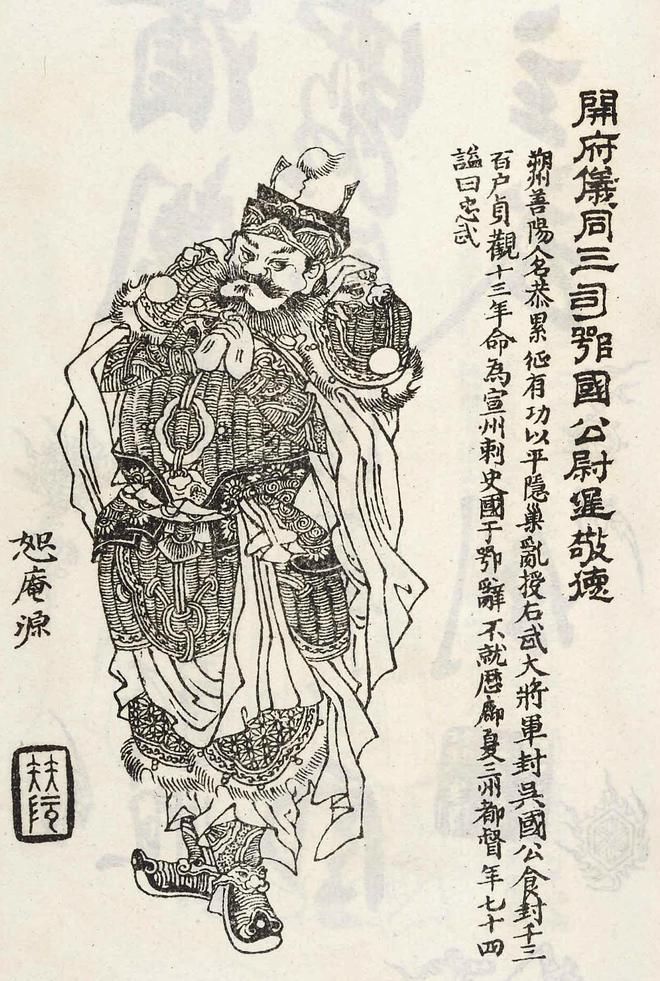 開府儀同三司鄂國公尉遲敬德
朔州善陽人名恭累征有功以平隱巢亂授右武大將軍封吳國公食封千三
百户貞觀十三年命為宣州刺史國于鄂辭不就歷鄜夏三州都督年七十四
諡曰忠武
恕庵源